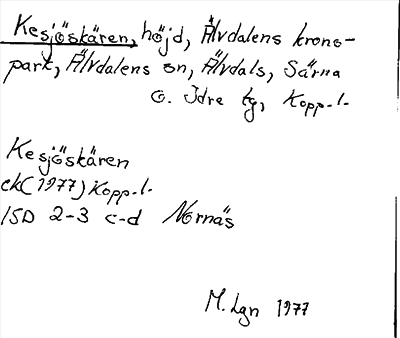 Kesjöskären, höjd, Älvdalens krono-
park, Älvdalens sn, Älvdals, Särna
o. Idre tg, Kopp.l.
Kesjöskären
ek(1977) Kopp.l.
15D 2-3 c-d Nornäs
M. Lgn 1977